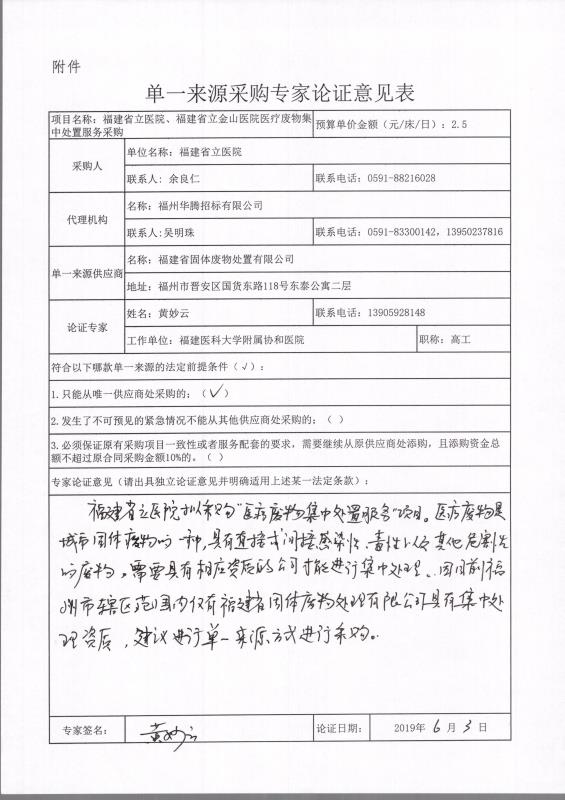 附件
单一来源采购专家论证意见表
项目名称：福建省立医院、福建省立金山医院医疗废物集
中处置服务采购
预算单价金额（元/床/日）：2.5
采购人
单位名称：福建省立医院
联系人：余良仁
联系电话：0591-88216028
代理机构
名称：福州华腾招标有限公司
联系人:吴明珠
联系电话：0591-83300142，13950237816
单一来源供应商
名称：福建省固体废物处置有限公司
地址：福州市晋安区国货东路118号东泰公寓二层
论证专家
姓名：黄妙云
联系电话：13905928148
工作单位：福建医科大学附属协和医院
职称：高工
符合以下哪款单一来源的法定前提条件（√）：
1.只能从唯一供应商处采购的；（√）
2.发生了不可预见的紧急情况不能从其他供应商处采购的；（ ）
3.必须保证原有采购项目一致性或者服务配套的要求，需要继续从原供应商处添购，且添购资金总
额不超过原合同采购金额10%的。（ ）
专家论证意见（请出具独立论证意见并明确适用上述某一法定条款）：
福建省立医院拟采购“医疗废物集中处置服务”项目。医疗废物是
城市固体废物的一种，具有直接或间接感染性、毒性以及其他危害性
的废物，需要具有相应资质的公司才能进行集中处理。因目前福
州市辖区范围内仅有福建省固体废物处理有限公司具有集中处
理资质，建议进行单一来源方式进行采购。
专家签名：
黄妙云
论证日期：
2019年 6 月 3 日